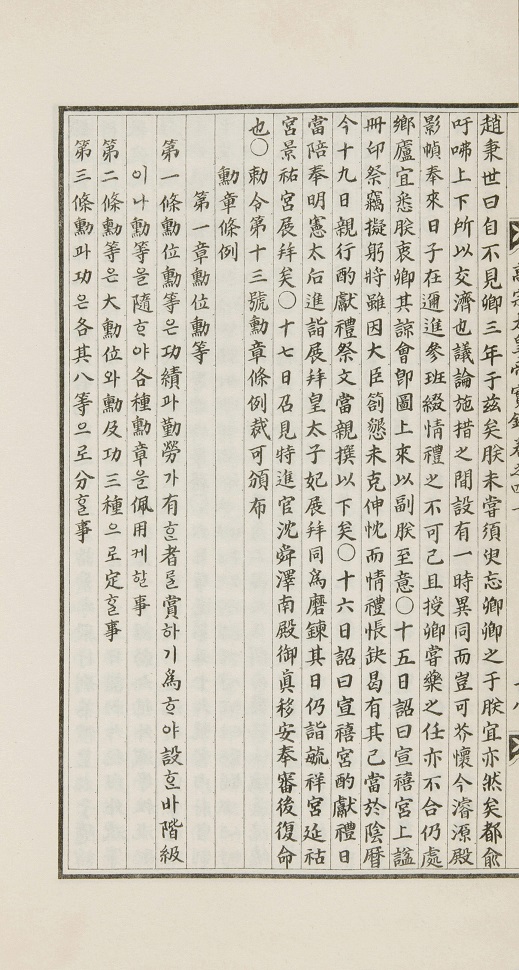 趙秉世曰自不見卿三年于玆矣朕未嘗須臾忘卿卿之于朕宜亦然矣都兪
吁咈上下所以交濟也議論施措之間設有一時異同而豈可芥懷今濬源殿
影幀奉來日子在邇進參班綴情禮之不可已且授卿嘗藥之任亦不合仍處
鄕廬宜悉朕衷卿其諒會卽圖上來以副朕至意○十五日詔曰宣禧宮上諡
冊印祭竊擬躬將雖因大臣箚懇未克伸忱而情禮悵缺曷有其已當於陰曆
今十九日親行酌獻禮祭文當親撰以下矣○十六日詔曰宣禧宮酌獻禮日
當陪奉明憲太后進詣展拜皇太子妃展拜同爲磨鍊其日仍詣毓祥宮延祜
宮景祐宮展拜矣○十七日召見特進官沈舜澤南殿御眞移安奉審後復命
也○勅令第十三號勳章條例裁可頒布
勳章條例
第一章勳位勳等
第一條勳位勳等은功績과勤勞가有ᄒᆞᆫ者ᄅᆞᆯ賞하기爲ᄒᆞ야設ᄒᆞᆫ바階級
이나勳等을隨ᄒᆞ야各種勳章을佩用케할事
第二條勳等은大勳位와勳及功三種으로定ᄒᆞᆯ事
第三條勳과功은各其八等으로分ᄒᆞᆯ事